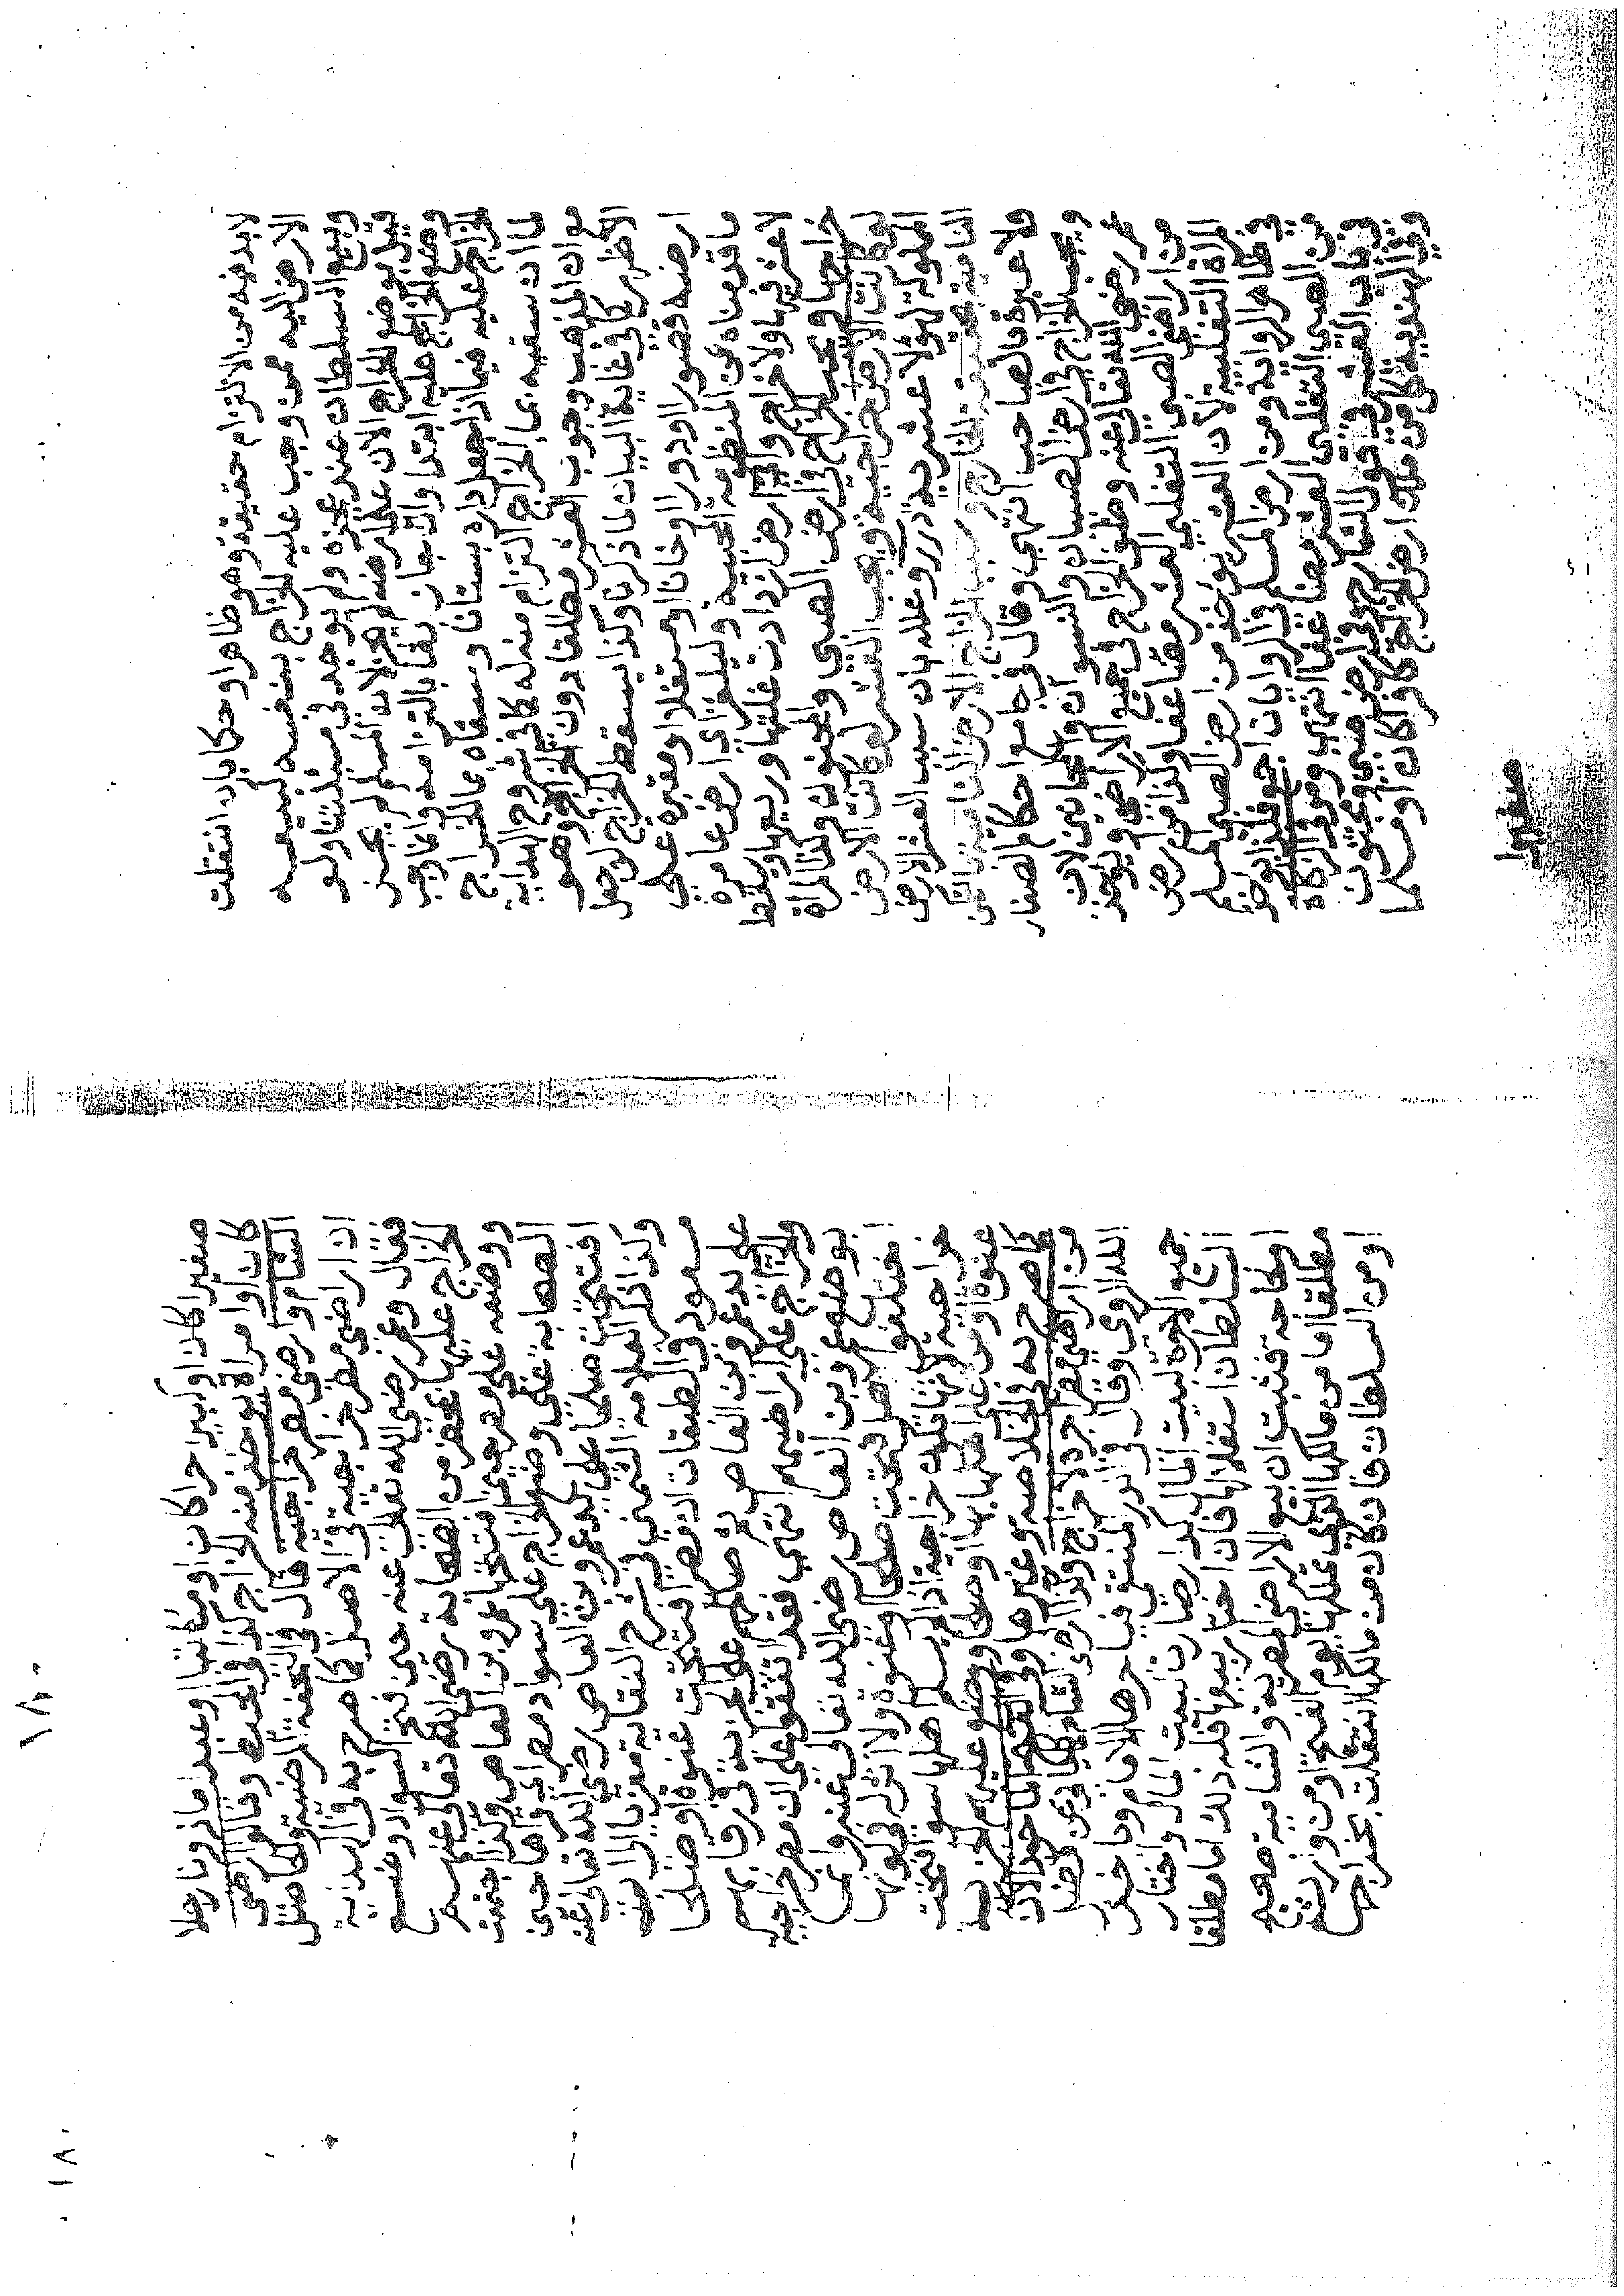 لا بد فيه من الالتزام حقيقة وهو ظاهر او حكما بان انتقلت
الارض اليه ممن وجب عليه الخراج بنفسه لبيعه
وبيع السلطان عند عجزه ولم يوجد في مسئلتنا ولو
قيل بوضع الخراج الان على ارضه لم يجز لان المسلم لم يجز
وضع الخراج عليه ابتدا وان جاز بقا بالتزامه وانما وجب
الخراج عليه فيما اذا جعل داره بستانا وسقاه بماء الخراج
لما ان سقيه بماء الخراج التزام منه له كما في شروح الهداية
مع ان المذهب وجوب العشر مطلقا دون الخراج وهو
الاظهر كما في غاية البيان لما ذكرنا وكذا يسقط الخراج لو جعل
ارضه قصورا او دورا او خانا او مستغلا او مقبرة على
ما قدمناه عن المنظومة المحبية وليلغز اي ارض عامرة
لا عشر فيها ولا خراج واي ارض ازدادت غلتها وريعها ويسقط
خراجها ويجب الخراج في ارض الصبي والمجنون والمراة
لو كانت الارض خراجية ويجب العشر لو كانت الارض
المملوكة لهؤلا عشرية درر وعلله بان سبب العشر الارض
النامية حقيقة الخارج وسبب الخراج الارض النامية بالتمكن
ولا عبرة بالصاحب انتهى وقال في جامع احكام الصغار
ويجب الخراج في ارض الصبيان والنسوان والمجانين لان
عمر رضي الله تعالى عنه وظف الخراج في جميع الاراضي ويؤخذ
من اراضي الصبي التغلبي العشر مضاعفا وكذا من ارض
المراة التغلبية لان العشر يؤخذ من ارض الصبي المسلم
في ظاهر الرواية ومن ارض المسلم في الروايات اجمع فكذا يؤخذ
من الصبي التغلبي العشر مضاعفا انتهى ومر في الزكاة
وفي باب العشر قول الشارح وفي ارض صبي ومجنون
وفي الهندية كل من ملك ارض الخراج كافرا كان او مسلما
صغيرا
١٨٠
صغيرا كان او كبيرا حرا كان او مكاتبا او عبدا ماذونا رجلا
كان او امراة يؤخذ منه الخراج كذا في المحيط وقالوا اراضي
الشام واراضي مصر خراجية قال في التحفة المرضية والحاصل
ان اراضي مصر خراجية في الاصل كما صرح به في الهداية
فقال وعمر رضي الله تعالى عنه حين فتح السواد وضع
الخراج عليها بمحضر من الصحابة رضي الله تعالى عنهم
ووضعه على مصر حين افتتحها عمرو بن العاص وكذا اجتمعت
الصحابة على وضع الخراج على سواد مصر اي قراها حين
افتتحت صلحا على يد عمرو بن العاص رضي الله تعالى عنه
وكذا ذكر العلامة الشمني في شرح النقاية معزيا الى ابن
سعود في الطبقات ان مصر افتتحت عنوة او صلحا
على يد عمرو بن العاص وصالحهم على الجزية في رقابهم
والخراج على اراضيهم انتهى فقد اتفقوا على ان مصر خراجية
بوضع عمرو بن العاص رضي الله تعالى عنه وان
اختلفوا هل فتحت صلحا او عنوة ولا اثر له في كونها
خراجية لانها تكون خراجية اذا لم يسلم اهلها سوا فتحت
عنوة ومن على اهلها بها او صلحا ووضع عليهم الجزية
كما صرح به في الخلاصة وغيرها وفي الفتح الماخوذ الان
من اراضي مصر اجرة لا خراج وكذا ارض الشام كما عن فضل
الله الرومي وقال في الدر المنتقى فياجرها الامام وياخذ
جميع الاجرة لبيت المال كدار صارت لبيت المال واختار
السلطان استغلالها وان اختار بيعها فله ذلك اما مطلقا
او لحاجة فثبت ان بيع الاراضي المصرية والشامية صحيح
مطلقا اما من مالكها الذي ملكها يوم الفتح او من وارثه
او من السلطان فان كان من مالكها انتقلت بخراجها
١٨٠